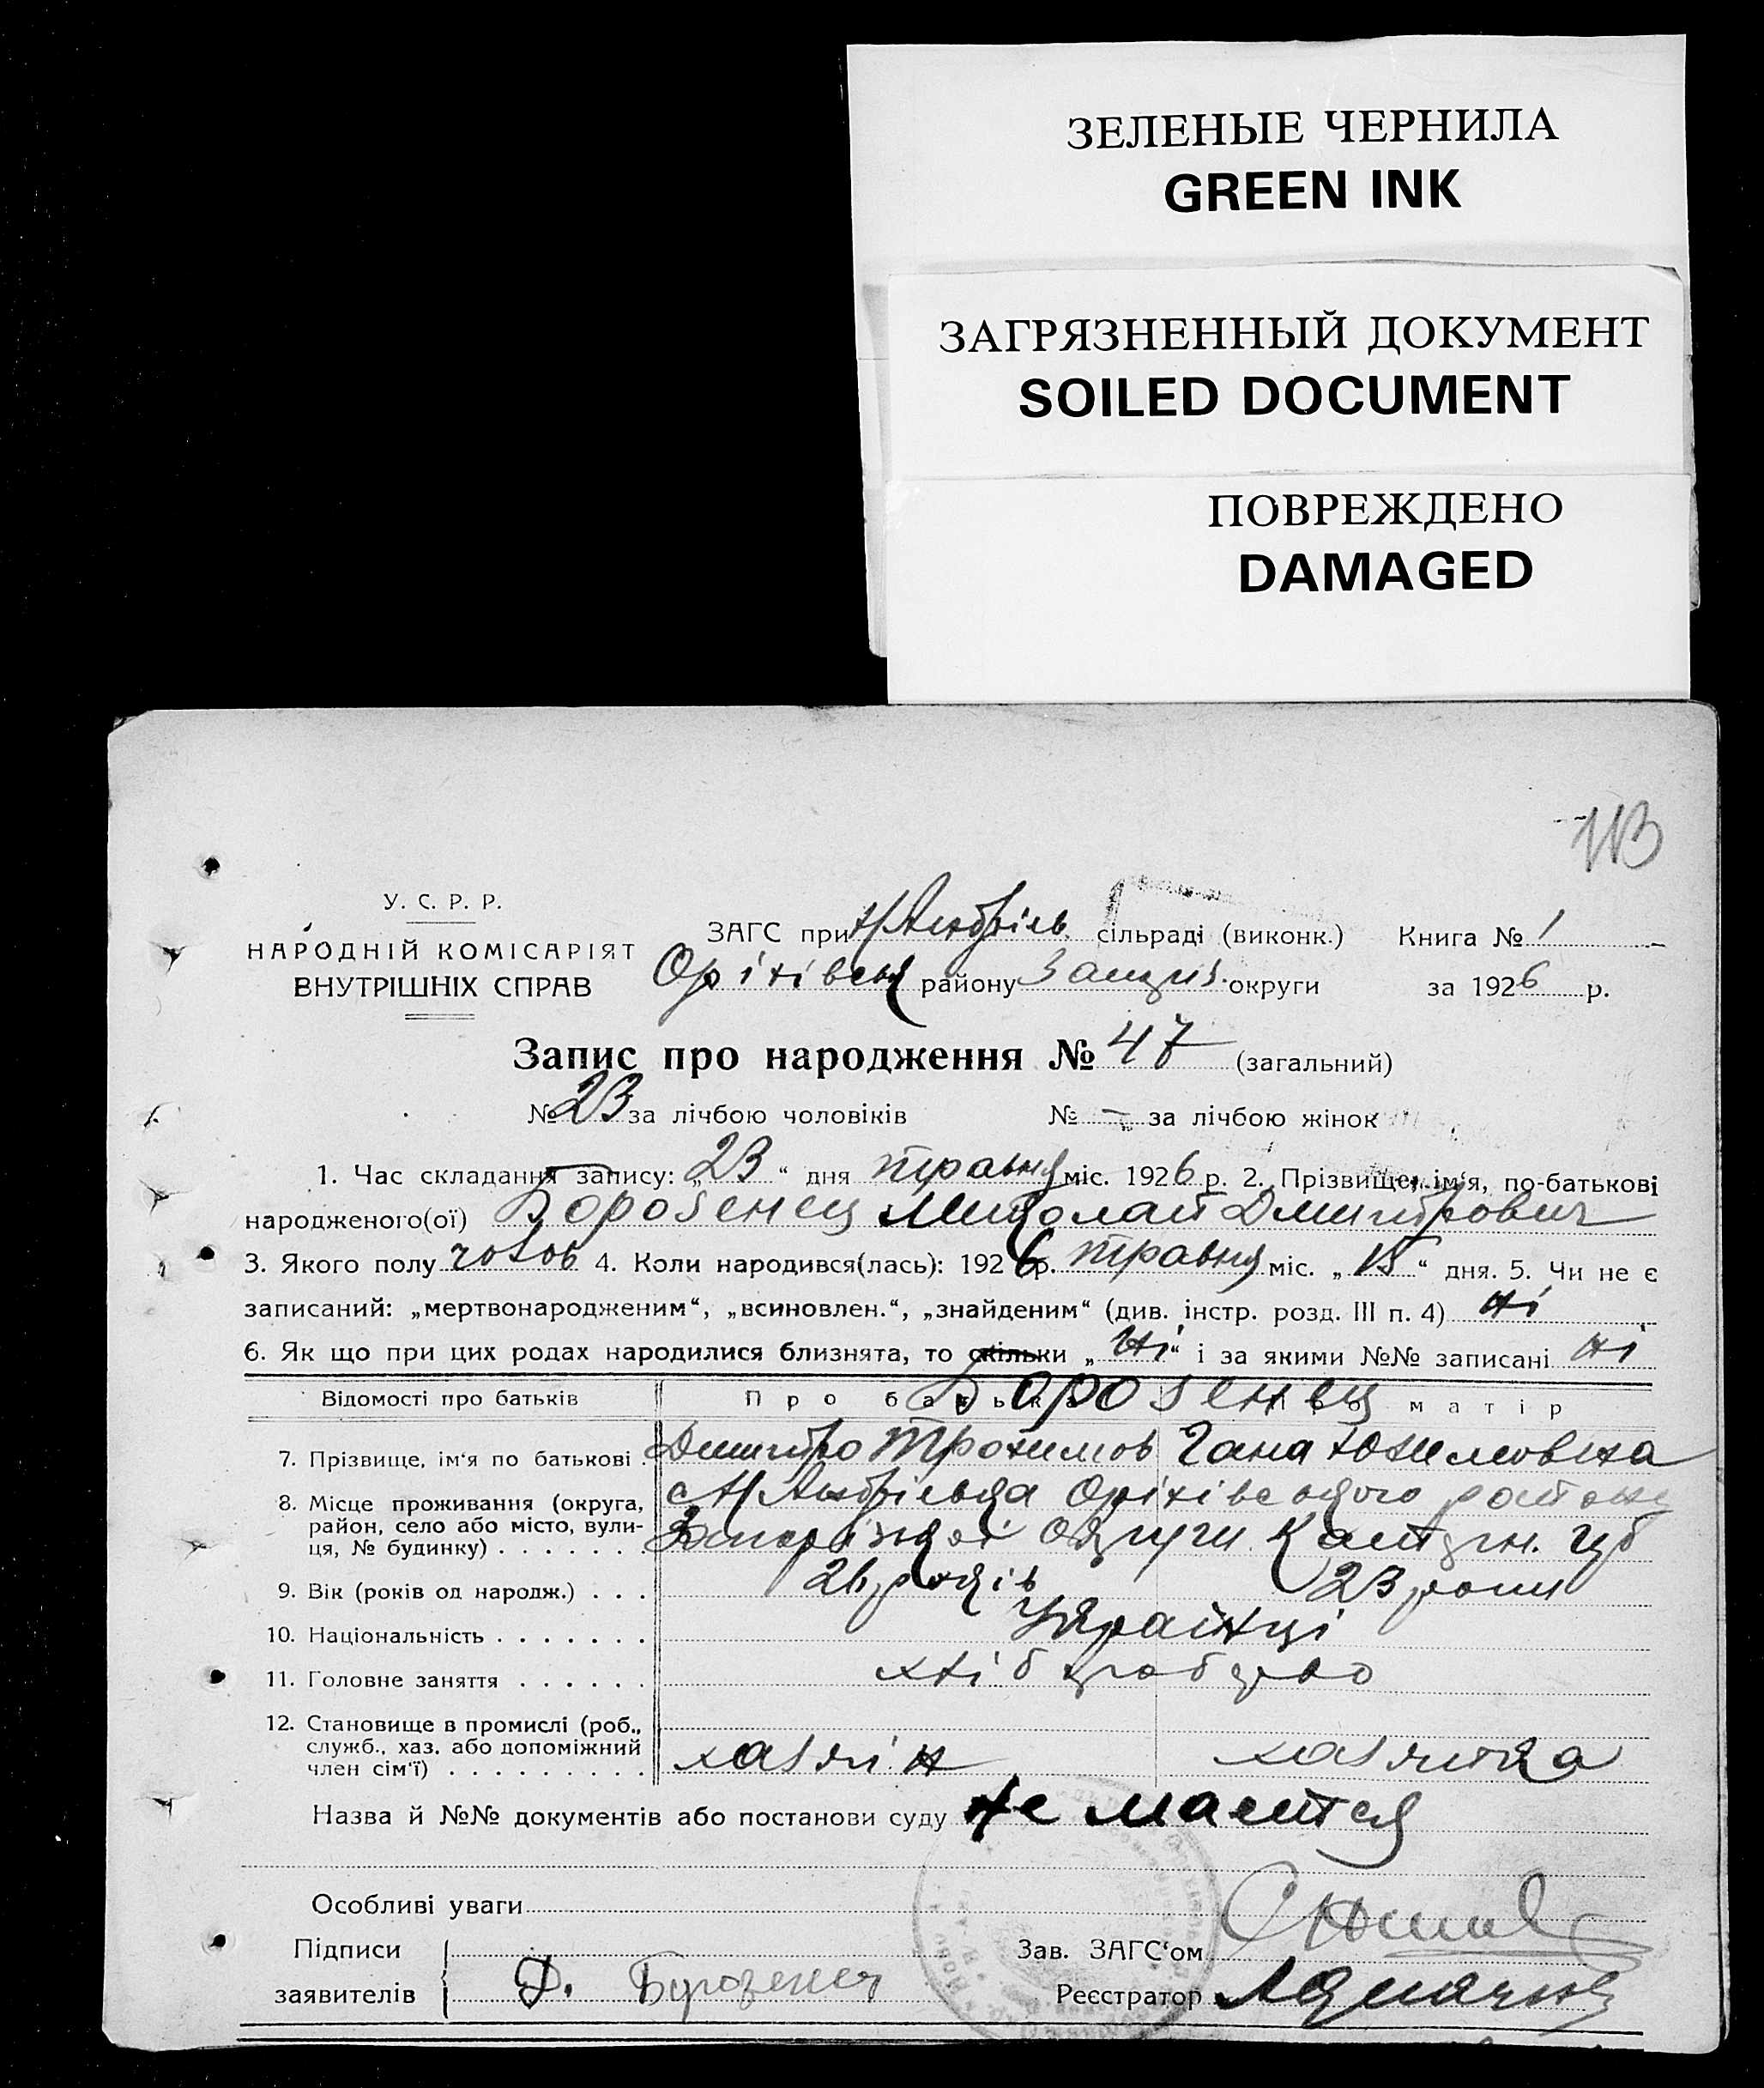 ЗЕЛЕНЫЕ ЧЕРНИЛА
GREEN INK
ЗАГРЯЗНЕННЫЙ ДОКУМЕНТ
SOILED DOCUMENT
ПОВРЕЖДЕНО
DAMAGED
113
У. С. Р. Р.
НАРОДНІЙ КОМІСАРІЯТ
ВНУТРІШНІХ СПРАВ
ЗАГС при сільраді (виконк.) Книга № 1
Оріхівськ району округи за 1926 р.
Запис про народження № 47 (загальний)
№ 23 за лічбою чоловіків № — за лічбою жінок
1. Час складання запису: „23“ дня травня міс. 1926 р. 2. Прізвище, ім‘я, по-батькові
народженого(ої) Борозенец Миколай Дмитрович
3. Якого полу чолов 4. Коли народився(лась): 1926 р. травня міс. „15“ дня. 5. Чи не є
записаний: „мертвонародженим“, „всиновлен.“, „знайденим“ (див. інстр. розд. III п. 4) ні
6. Як що при цих родах народилися близнята, то скільки „ні“ і за якими №№ записані ні
Відомості про батьків Про батька Про матір
Борозенец
7. Прізвище, ім‘я по батькові . Дмитро Трохимов Гана Юхимовна
8. Місце проживання (округа, с Н Андріевка Оріхівського району
район, село або місто, вули- Запорізкоі Округи
ця, № будинку) . . . . . .
9. Вік (років од народж.) . . . 26 років 23 роки
10. Національність . . . . . . . Украінці
11. Головне заняття . . . . . . хлібробство
12. Становище в промислі (роб.,
служб., хаз. або допоміжний
член сім‘ї) . . . . . . . . . хазяін хазяйка
Назва й №№ документів або постанови суду не маеться
Особливі уваги
Підписи Зав. ЗАГС‘ом
заявителів Д. Борозенец Реєстратор